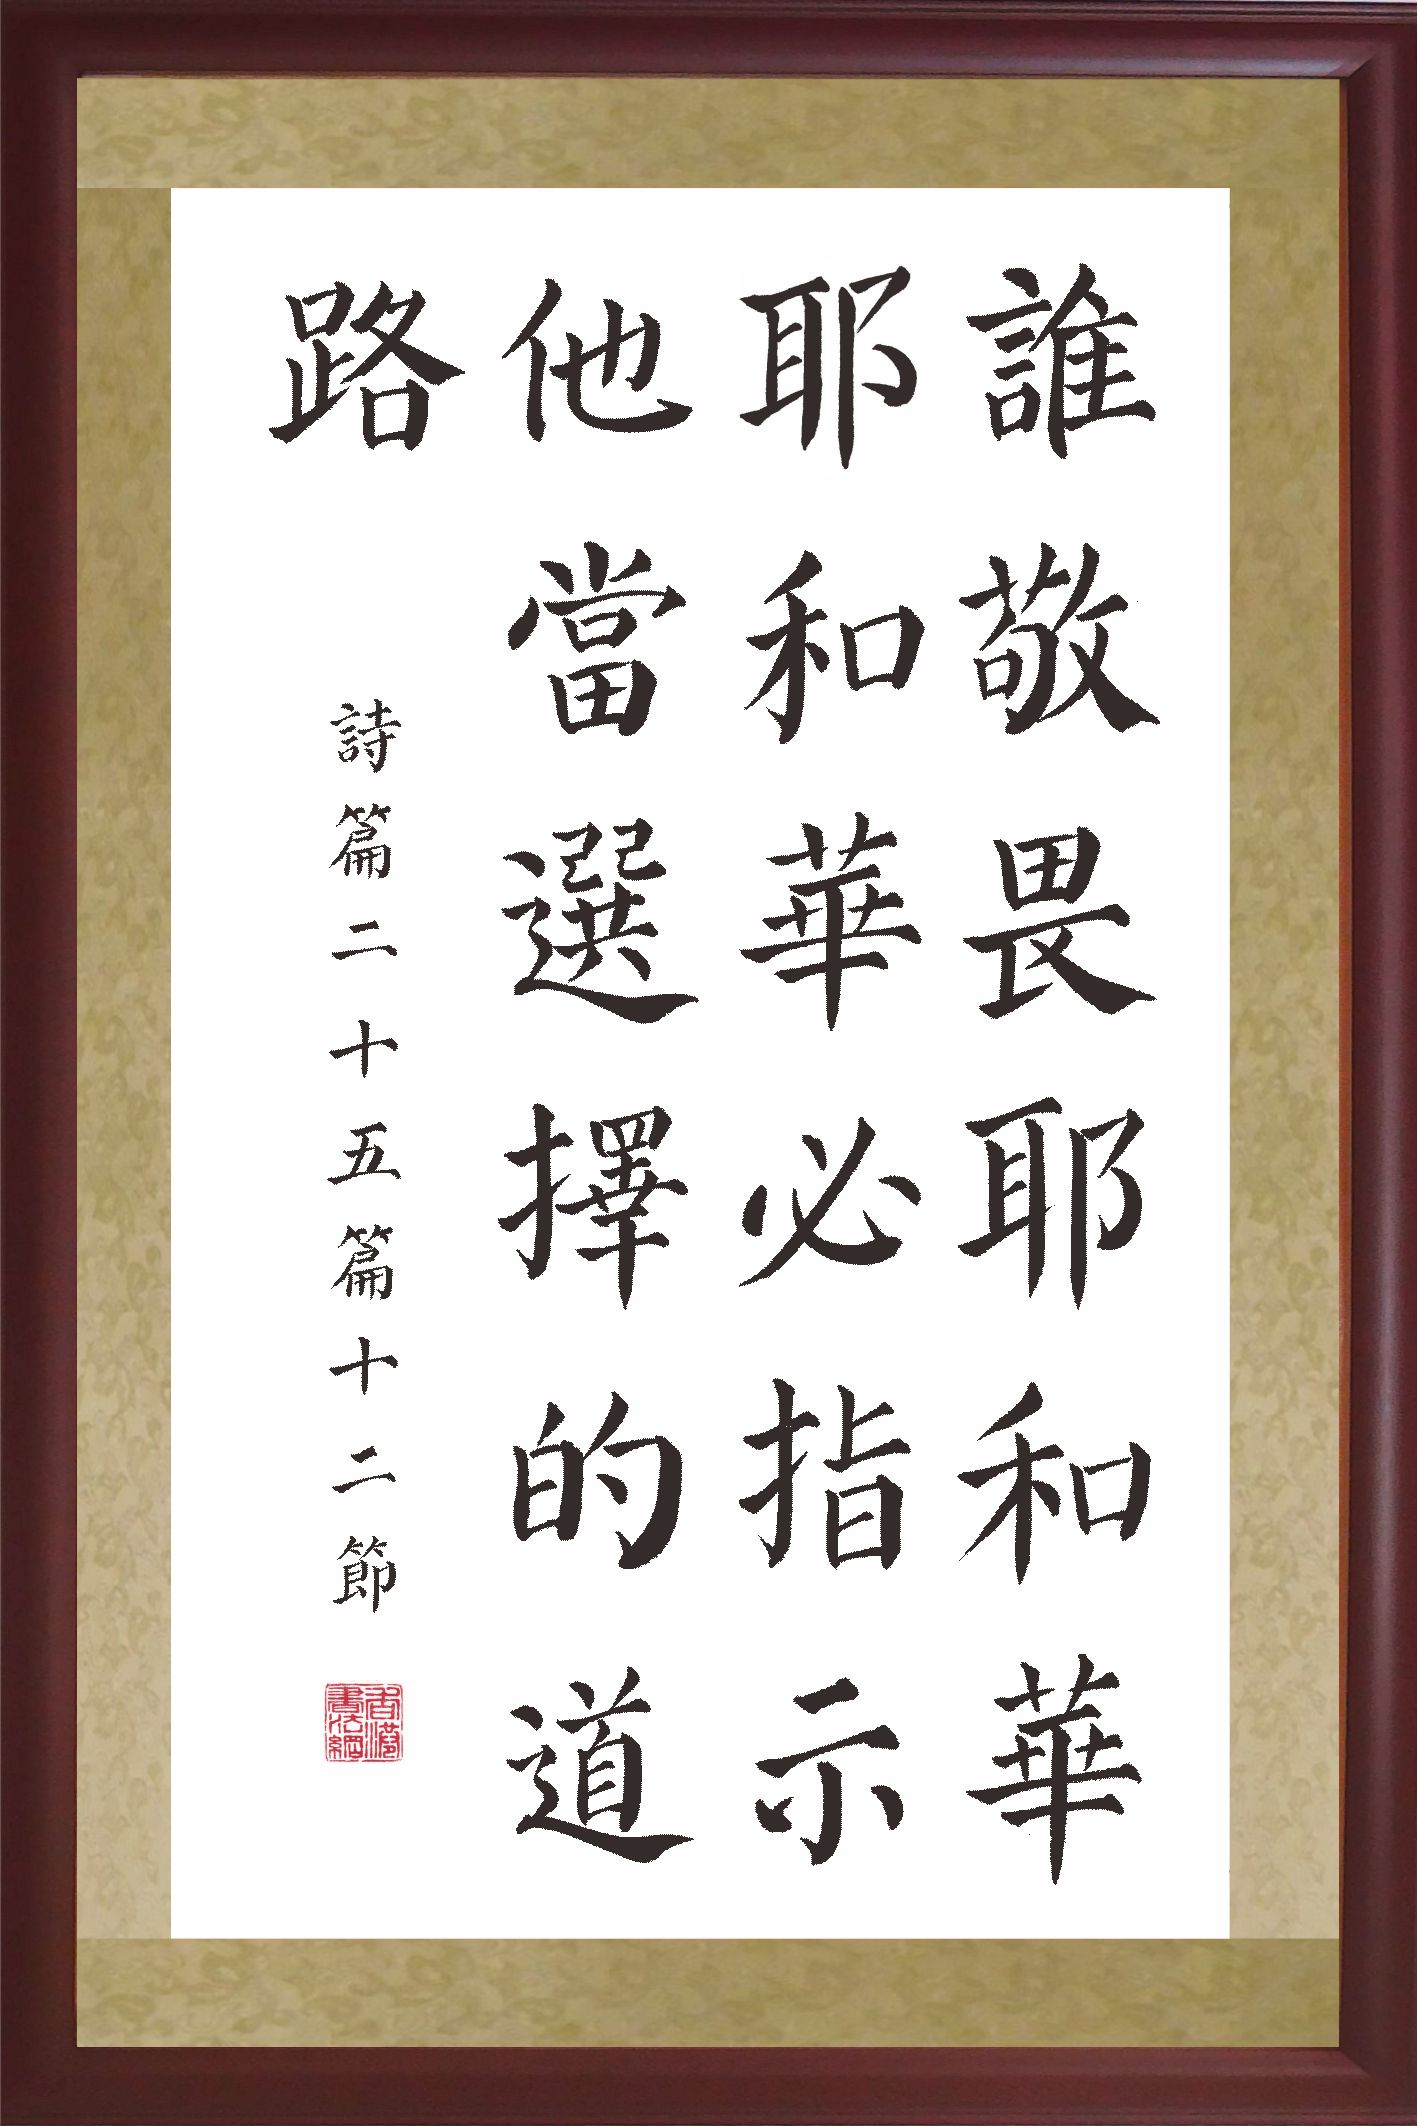 誰敬畏耶和華
耶和華必指示
他當選擇的道
路
詩篇二十五篇十二節
香港書法網